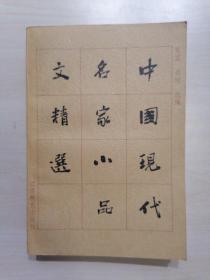 中國現代
名家小品
文精選